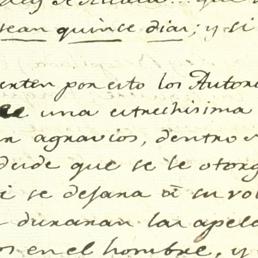 sean quince dias; y si
por esto los Autores
una estrechisima
agravios, dentro
que se le otorg
se dejara â su vol
duraran las apela
en el hombre, y